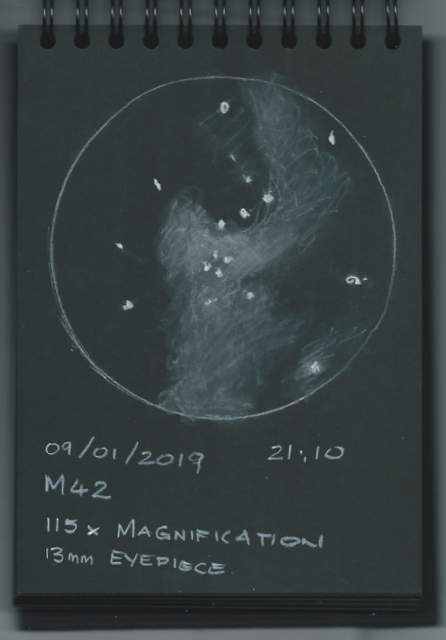 09/01/2019 21:10
M42
115x MAGNIFICATION
13mm EYEPIECE